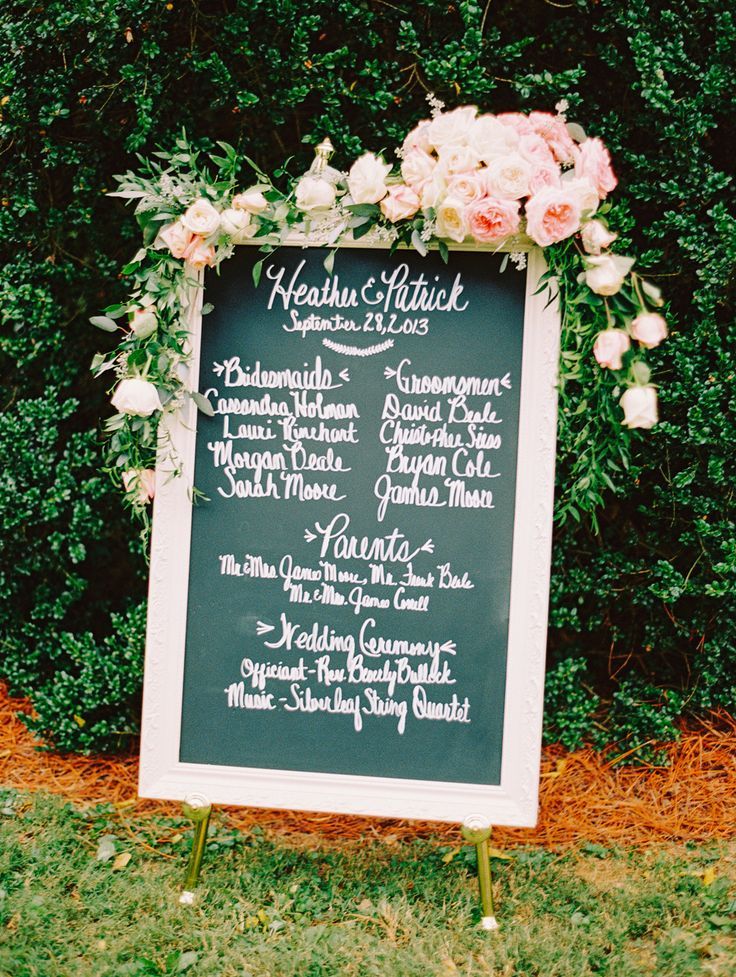 Heather & Patrick
September 28, 2013
Bridesmaids
Cassandra Holman
Lauri Rinehart
Morgan Beale
Sarah Moore
Groomsmen
David Beale
Christopher Siros
Bryan Cole
James Moore
Parents
Mr. & Mrs. James Moore, Mr. Frank Beale
Mr. & Mrs. James
Wedding Ceremony
Officiant - Rev. Beverly Bullock
Music - Silverleaf String Quartet